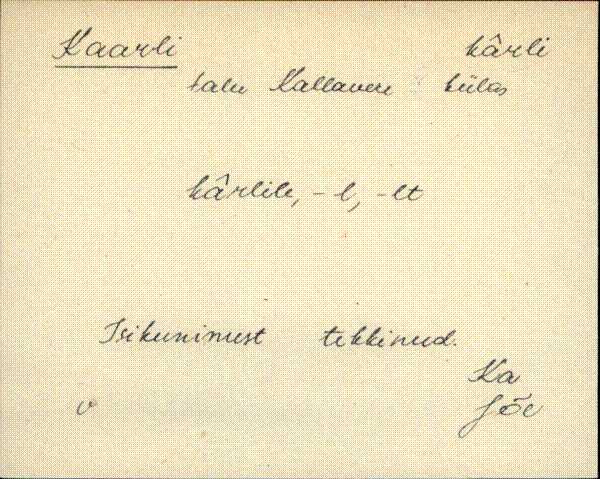 Kaarli kârli
talu Kallavere külas
kârlile, -l, -lt
Isikunimest tekkinud.
Ka
v Jõe